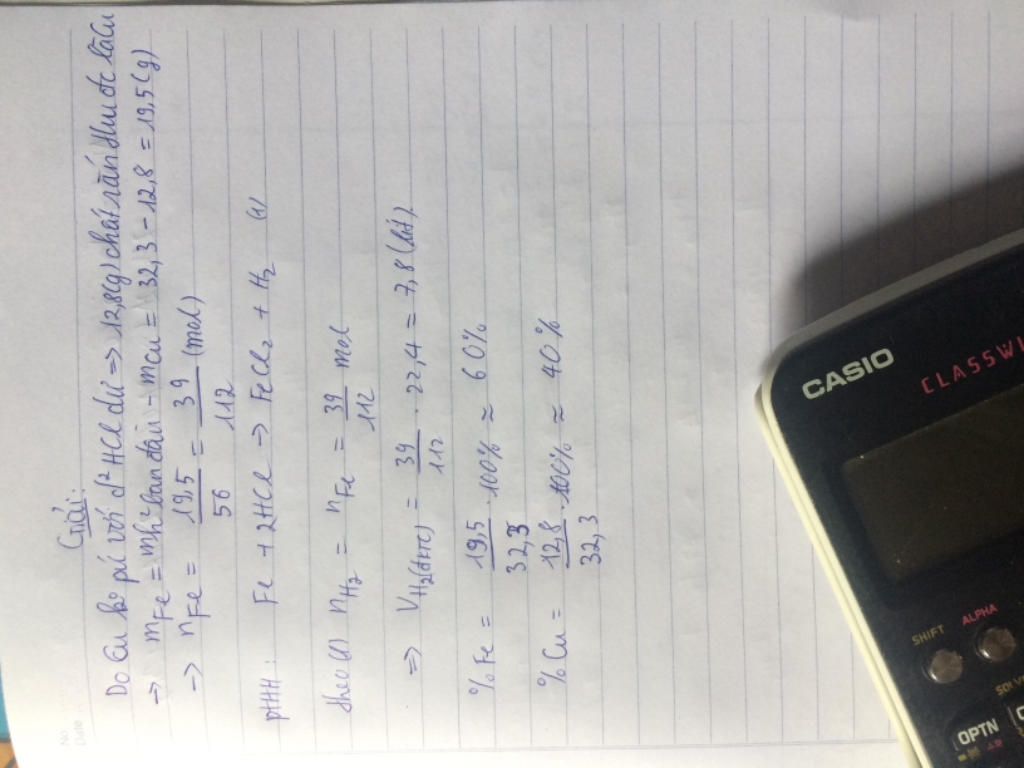 No.
Date
Giải:
Do Cu ko pứ với d² HCl dư => 12,8(g) chất rắn thu đc là Cu
-> mFe = mh² ban đầu - mCu = 32,3 - 12,8 = 19,5(g)
-> nFe = 19,5/56 = 39/112 (mol)
ptHH: Fe + 2HCl -> FeCl₂ + H₂ (1)
theo (1) nH₂ = nFe = 39/112 mol
=> VH₂(đktc) = 39/112 . 22,4 = 7,8 (lít)
% Fe = 19,5/32,3 . 100% ≈ 60%
% Cu = 12,8/32,3 . 100% ≈ 40%
CASIO
CLASSWI
SHIFT
ALPHA
OPTN